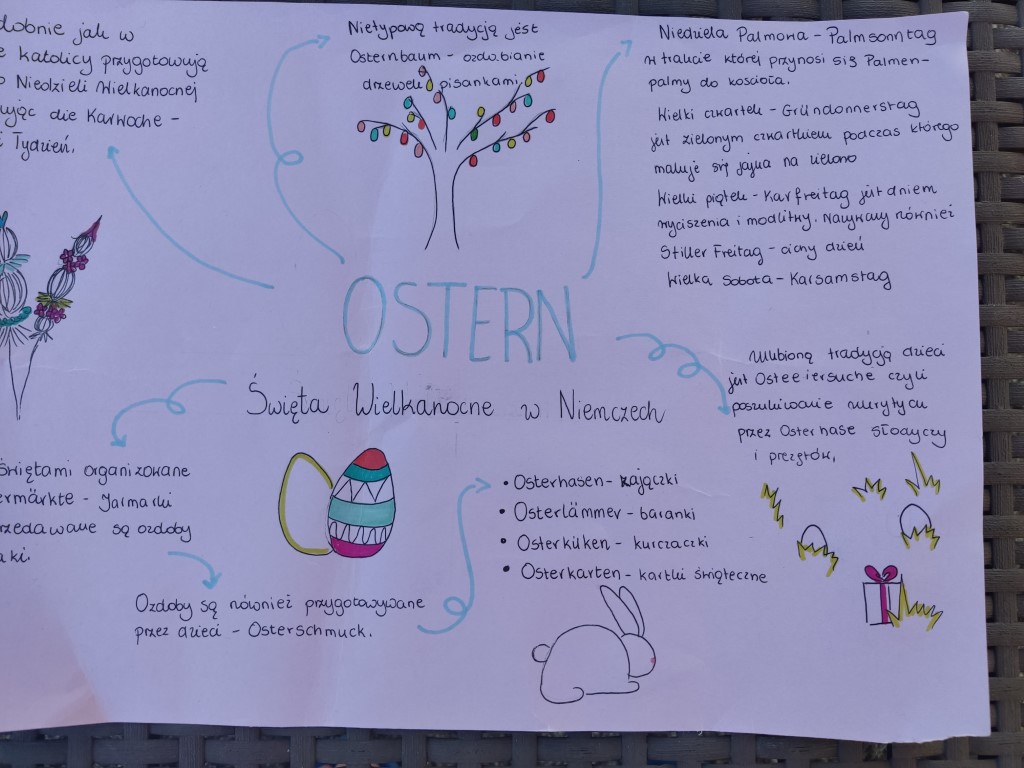 dobnie jak w
e katolicy przygotowują
o Niedzieli Wielkanocnej
ując die Karwoche –
Tydzień.
Nietypową tradycją jest
Osternbaum – ozdobianie
drzewek pisankami.
Niedziela Palmowa – Palmsonntag
w traucie której przynosi się Palmen-
palmy do kościoła.
Wielki czwartek – Gründonnerstag
jest zielonym czwartkiem podczas którego
maluje się jajka na zielono
Wielki piątek – Karfreitag jest dniem
wyciszenia i modlitwy. Nazywany również
Stiller Freitag – cichy dzień
Wielka Sobota – Karsamstag
OSTERN
Święta Wielkanocne w Niemczech
Ulubioną tradycją dzieci
jest Ostereiersuche czyli
poszukiwanie ukrytych
przez Osterhase słodyczy
i prezętów.
świętami organizowane
ermärkte – Jarmarki
rzedawane są ozdoby
aki.
Ozdoby są również przygotowywane
przez dzieci – Osterschmuck.
• Osterhasen – zajączki
• Osterlämmer – baranki
• Osterküken – kurczaczki
• Osterkarten – kartki świąteczne